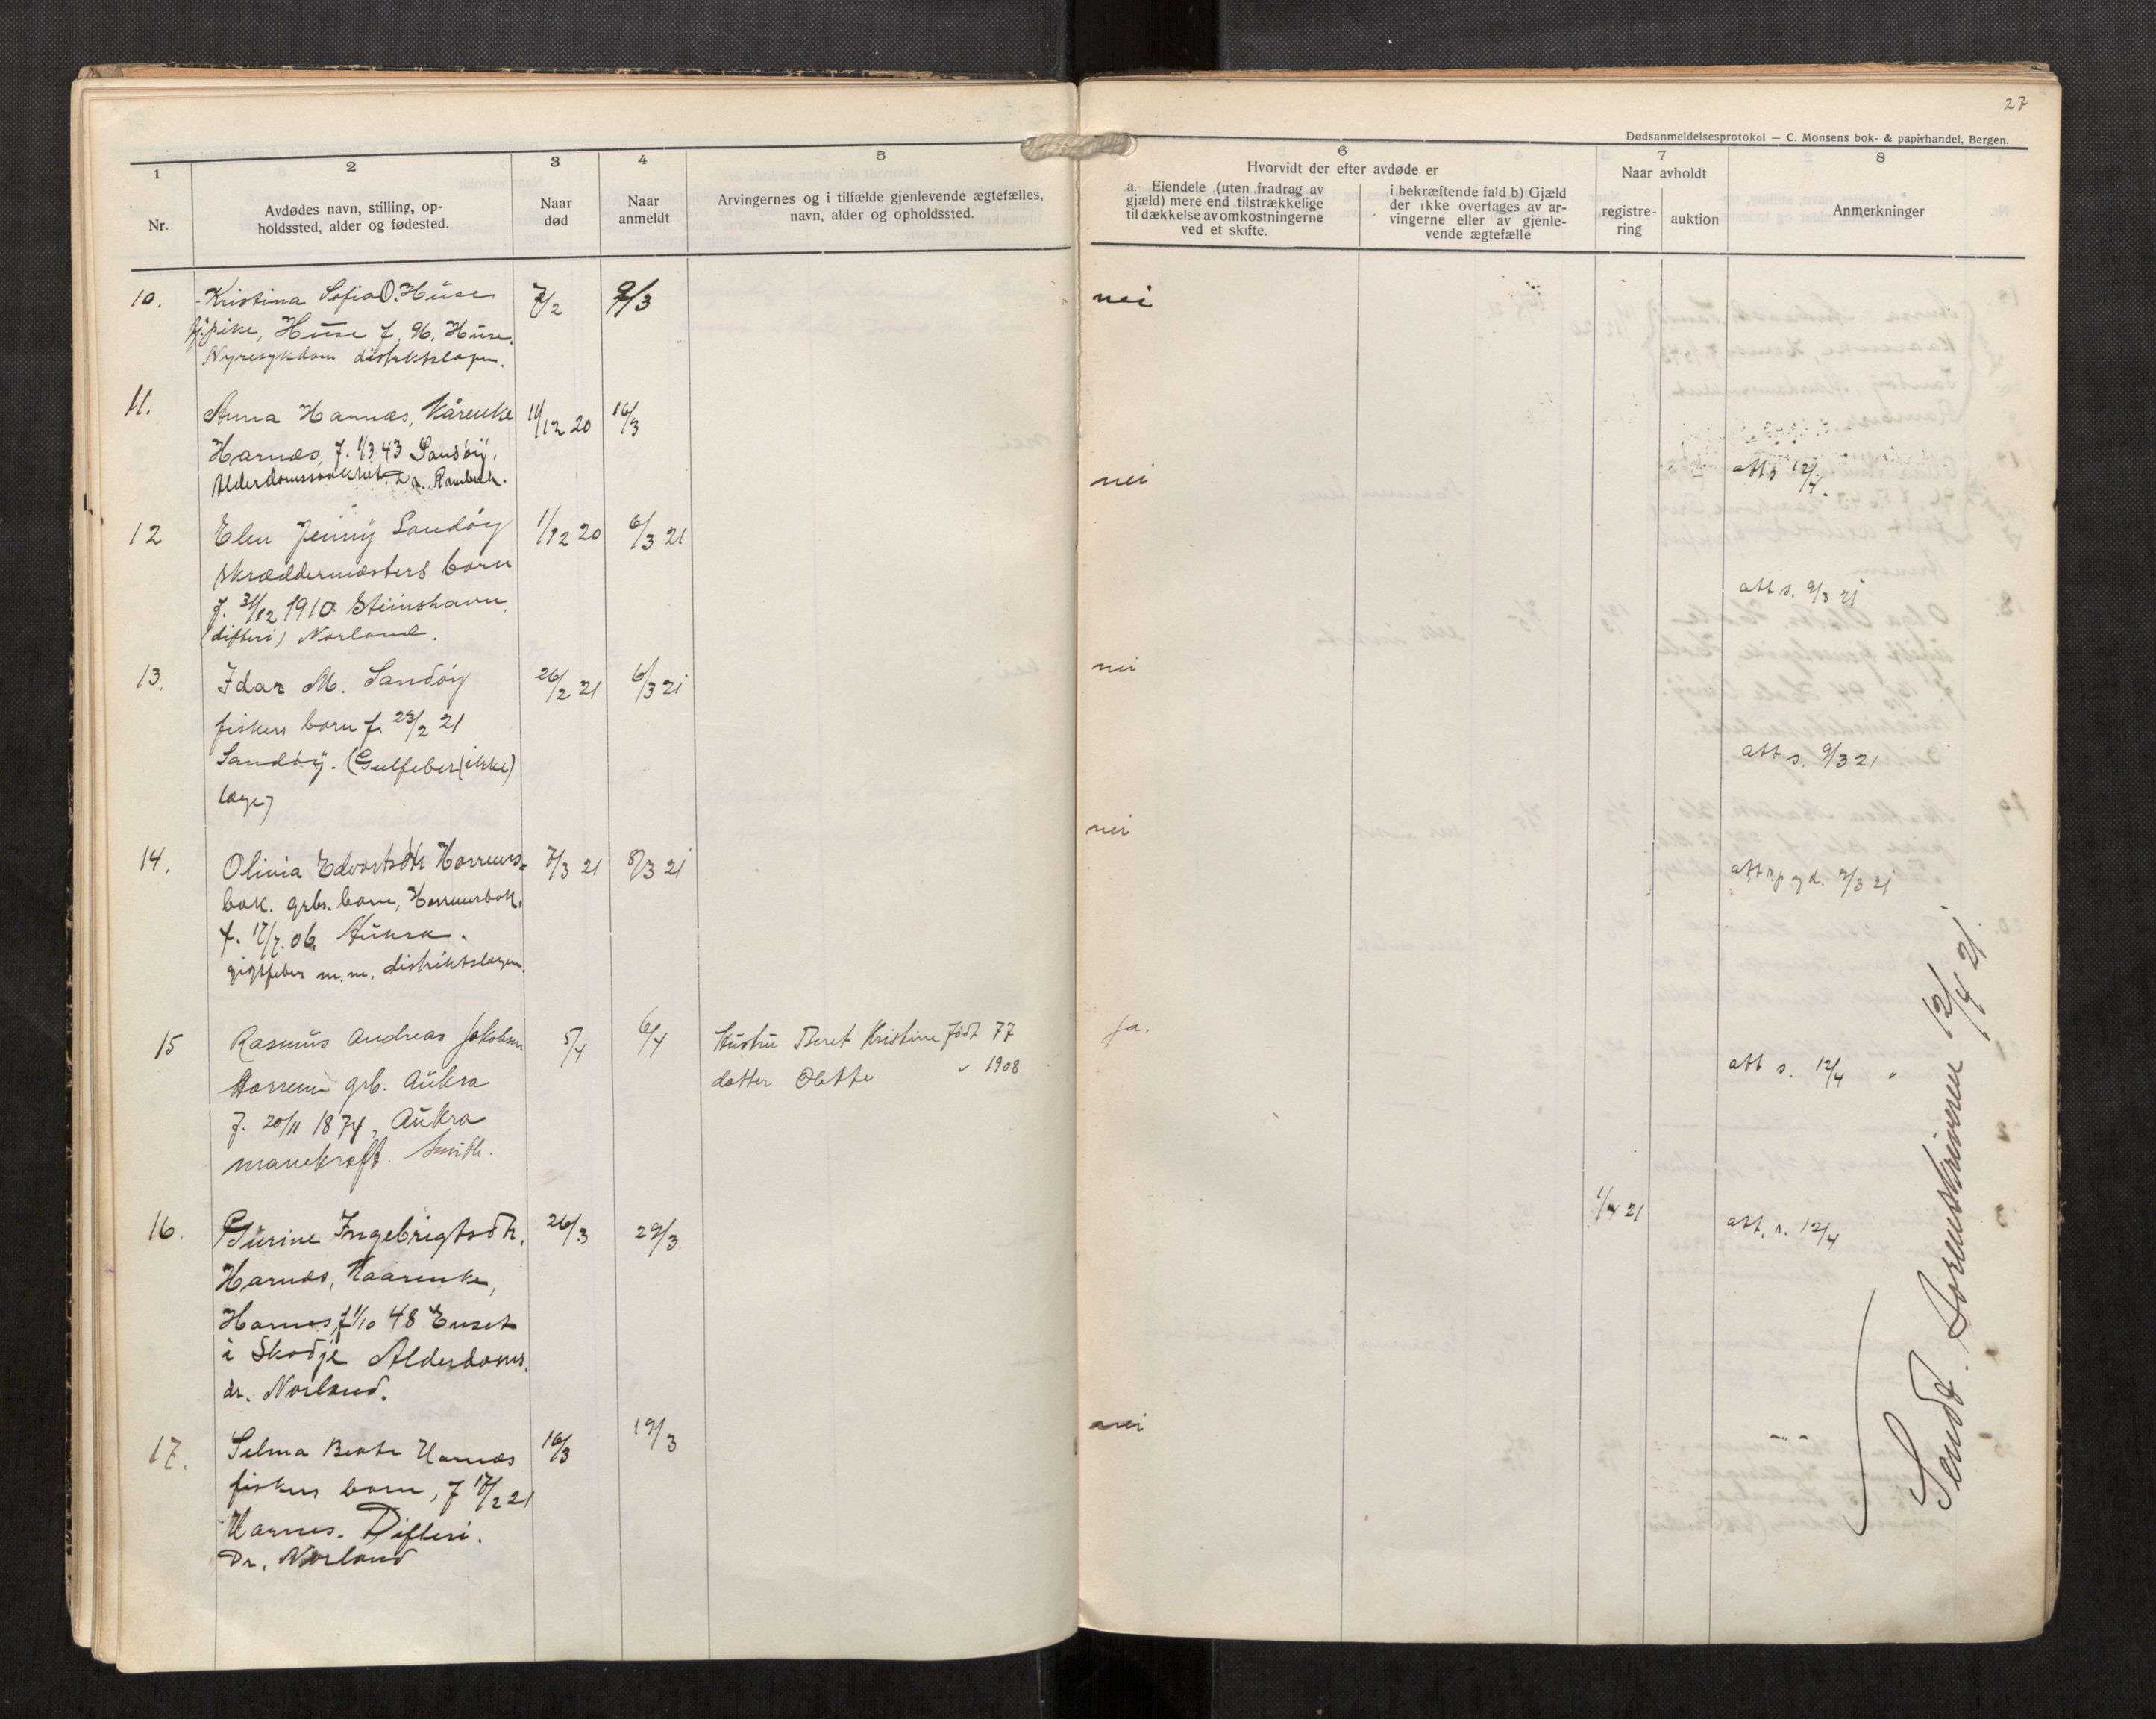 27
Dødsanmeldelsesprotokol — C. Monsens bok- & papirhandel, Bergen.
1
Nr.
2
Avdødes navn, stilling, op-
holdssted, alder og fødested.
3
Naar
død
4
Naar
anmeldt
5
Arvingernes og i tilfælde gjenlevende ægtefælles,
navn, alder og opholdssted.
6
Hvorvidt der efter avdøde er
a. Eiendele (uten fradrag av
gjæld) mere end tilstrækkelige
til dækkelse av omkostningerne
ved et skifte.
i bekræftende fald b) Gjæld
der ikke overtages av ar-
vingerne eller av gjenle-
vende ægtefælle
7
Naar avholdt
registre-
ring
auktion
8
Anmerkninger
10. Kristina Sofia O. Huse 7/2 9/3 nei
pike, Huse f. 96. Huse.
Nyresykdom distriktslægen.
11. Anna Harnæs, Kårenke 11/12 20 16/3
Harnæs, f. 1/3 43 Sandöy.
Alderdomssvakhet. Rambech. nei att s 12/4.
12 Elen Jenny Sandöy 1/12 20 6/3 21
skræddermesters barn
f. 31/12 1910. Steinshavn. att s. 9/3 21
(difteri) Norland.
13. Idar M. Sandöy 26/2 21 6/3 21 nei
fiskers barn f. 23/2 21
Sandöy. (Gulfeber (ikke) att s. 9/3 21
læge)
nei
14. Olivia Edvartsdtr Horrems- 7/3 21 8/3 21
bak. grbr. barn, Horremsbak. 9/3 21
f. 17/7. 06. Aukra.
gigtfeber m.m. distriktslægen.
15 Rasmus Andreas Jakobsen 5/4 6/4 Hustru Beret Kristine født 77 ja.
Horrem grb. Aukra datter Olette " 1908 att s. 12/4 "
f. 20/11 1874, Aukra
mavekræft. Smith.
16. Gurine Ingebrigtsdtr. 26/3 29/3 1/4 21 att. s. 12/4
Harnæs, Kaarenke,
Harnes, f 1/10 48 Enset
i Skodje Alderdoms.
dr. Norland.
17. Selma Beate Harnæs 16/3 19/3 nei - -
fiskers barn, f 17/2 21
Harnes. Difteri.
Dr. Norland
Sendt Sorenskriveren 12/4 21.